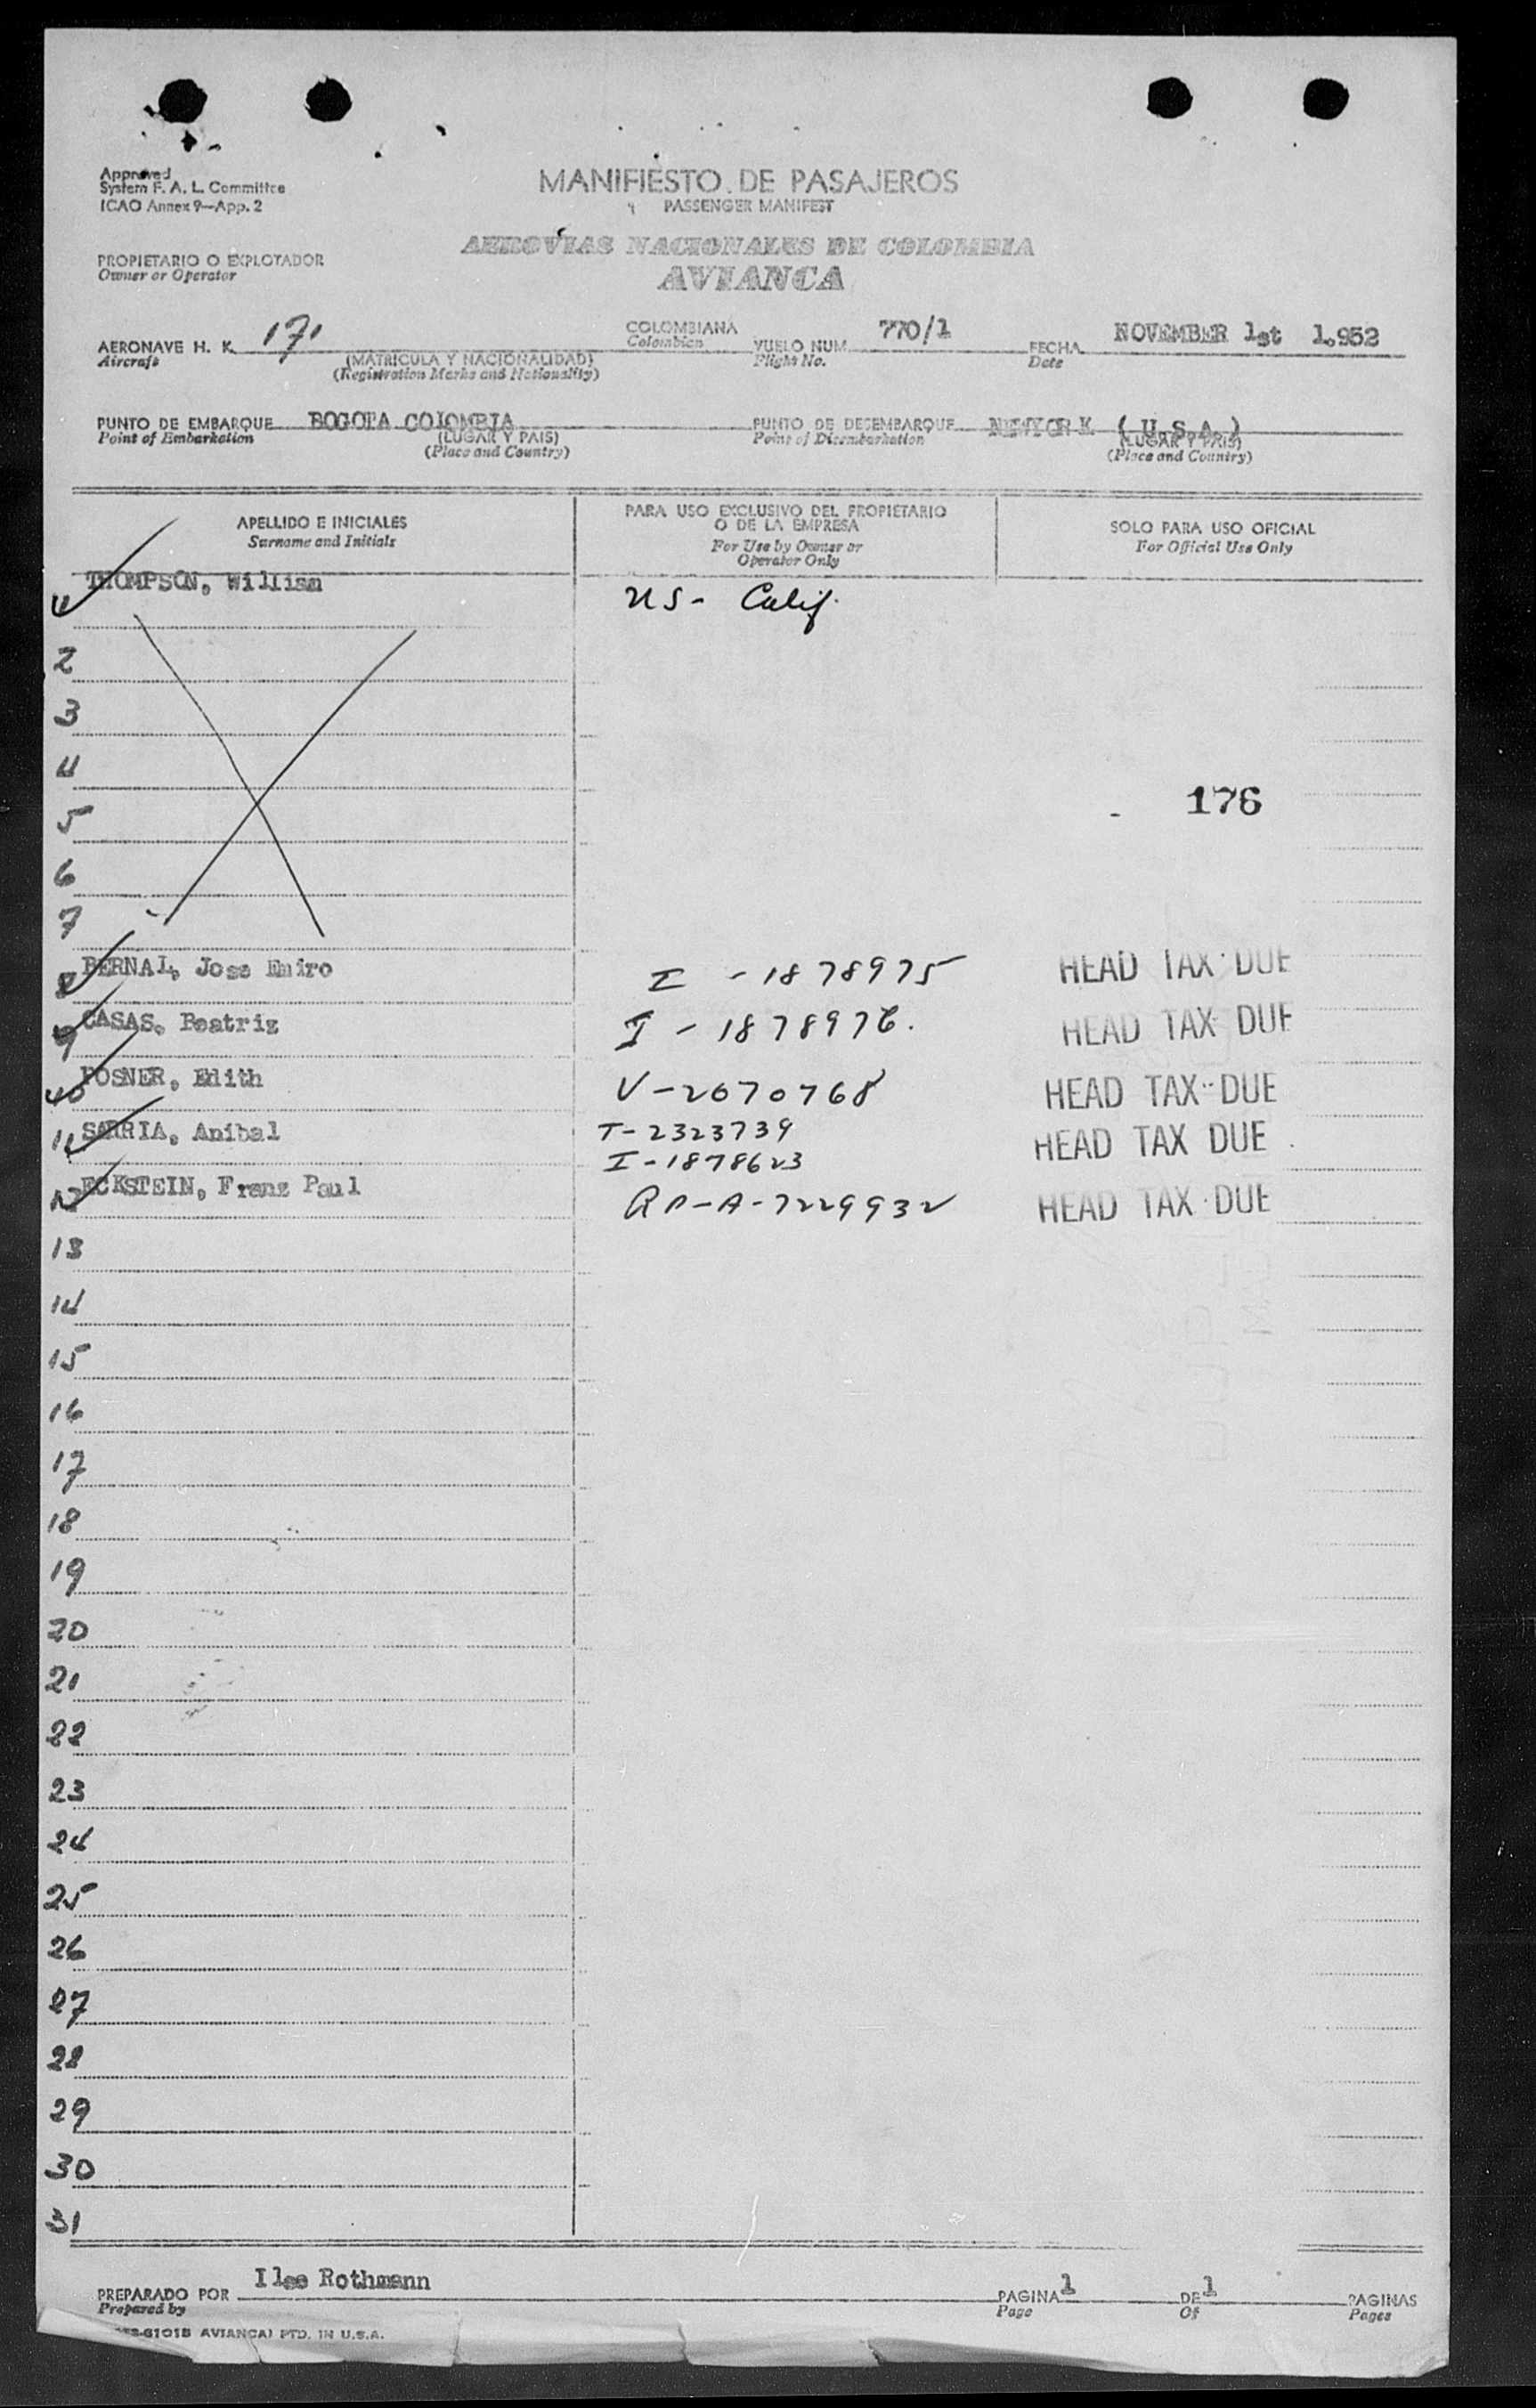 Approved
System F. A. L. Committee
ICAO Annex 9—App. 2
MANIFIESTO DE PASAJEROS
PASSENGER MANIFEST
AEROVIAS NACIONALES DE COLOMBIA
AVIANCA
PROPIETARIO O EXPLOTADOR
Owner or Operator
AERONAVE H. K. 171 COLOMBIANA VUELO NUM. 770/1 FECHA NOVEMBER 1st 1.952
Aircraft (MATRICULA Y NACIONALIDAD) Colombian Flight No. Date
(Registration Marks and Nationality)
PUNTO DE EMBARQUE BOGOTA COLOMBIA PUNTO DE DESEMBARQUE NEWYORK ( U.S.A.)
Point of Embarkation (LUGAR Y PAIS) Point of Disembarkation (LUGAR Y PAIS)
(Place and Country) (Place and Country)
APELLIDO E INICIALES
Surname and Initials
PARA USO EXCLUSIVO DEL PROPIETARIO
O DE LA EMPRESA
For Use by Owner or
Operator Only
SOLO PARA USO OFICIAL
For Official Use Only
THOMPSON, William US- Calif.
2
3
4
5
176
6
7
8 BERNAL, Jose Emiro I - 1878975 HEAD TAX DUE
9 CASAS, Beatriz I - 1878976. HEAD TAX DUE
10 POSNER, Edith V-2070768 HEAD TAX DUE
11 SARRIA, Anibal T-2323739 HEAD TAX DUE
I-1878623
12 ECKSTEIN, Franz Paul RP-A-7229932 HEAD TAX DUE
13
14
15
16
17
18
19
20
21
22
23
24
25
26
27
28
29
30
31
PREPARADO POR Ilse Rothmann PAGINA 1 DE 1 PAGINAS
Prepared by Page Of Pages
61015 AVIANCA) PTD. IN U.S.A.